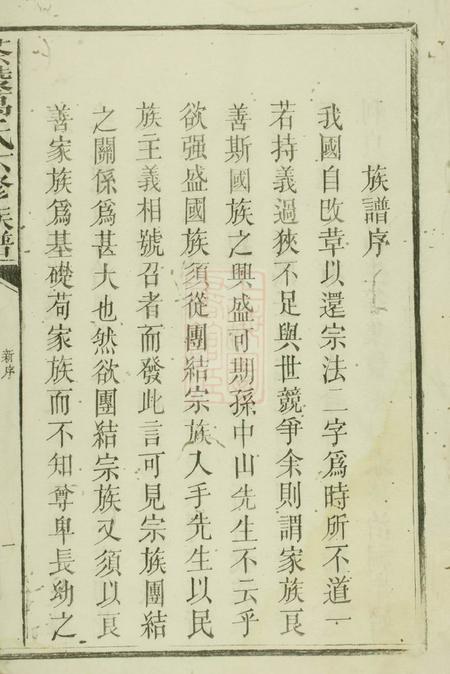 族譜序
我國自改革以還宗法二字爲時所不道一
若持義過狹不足與世競爭余則謂家族良
善斯國族之興盛可期孫中山先生不云乎
欲强盛國族須從團結宗族入手先生以民
族主義相號召者而發此言可見宗族團結
之關係爲甚大也然欲團結宗族又須以良
善家族爲基礎苟家族而不知尊卑長幼之
氏六修族譜
新序
一